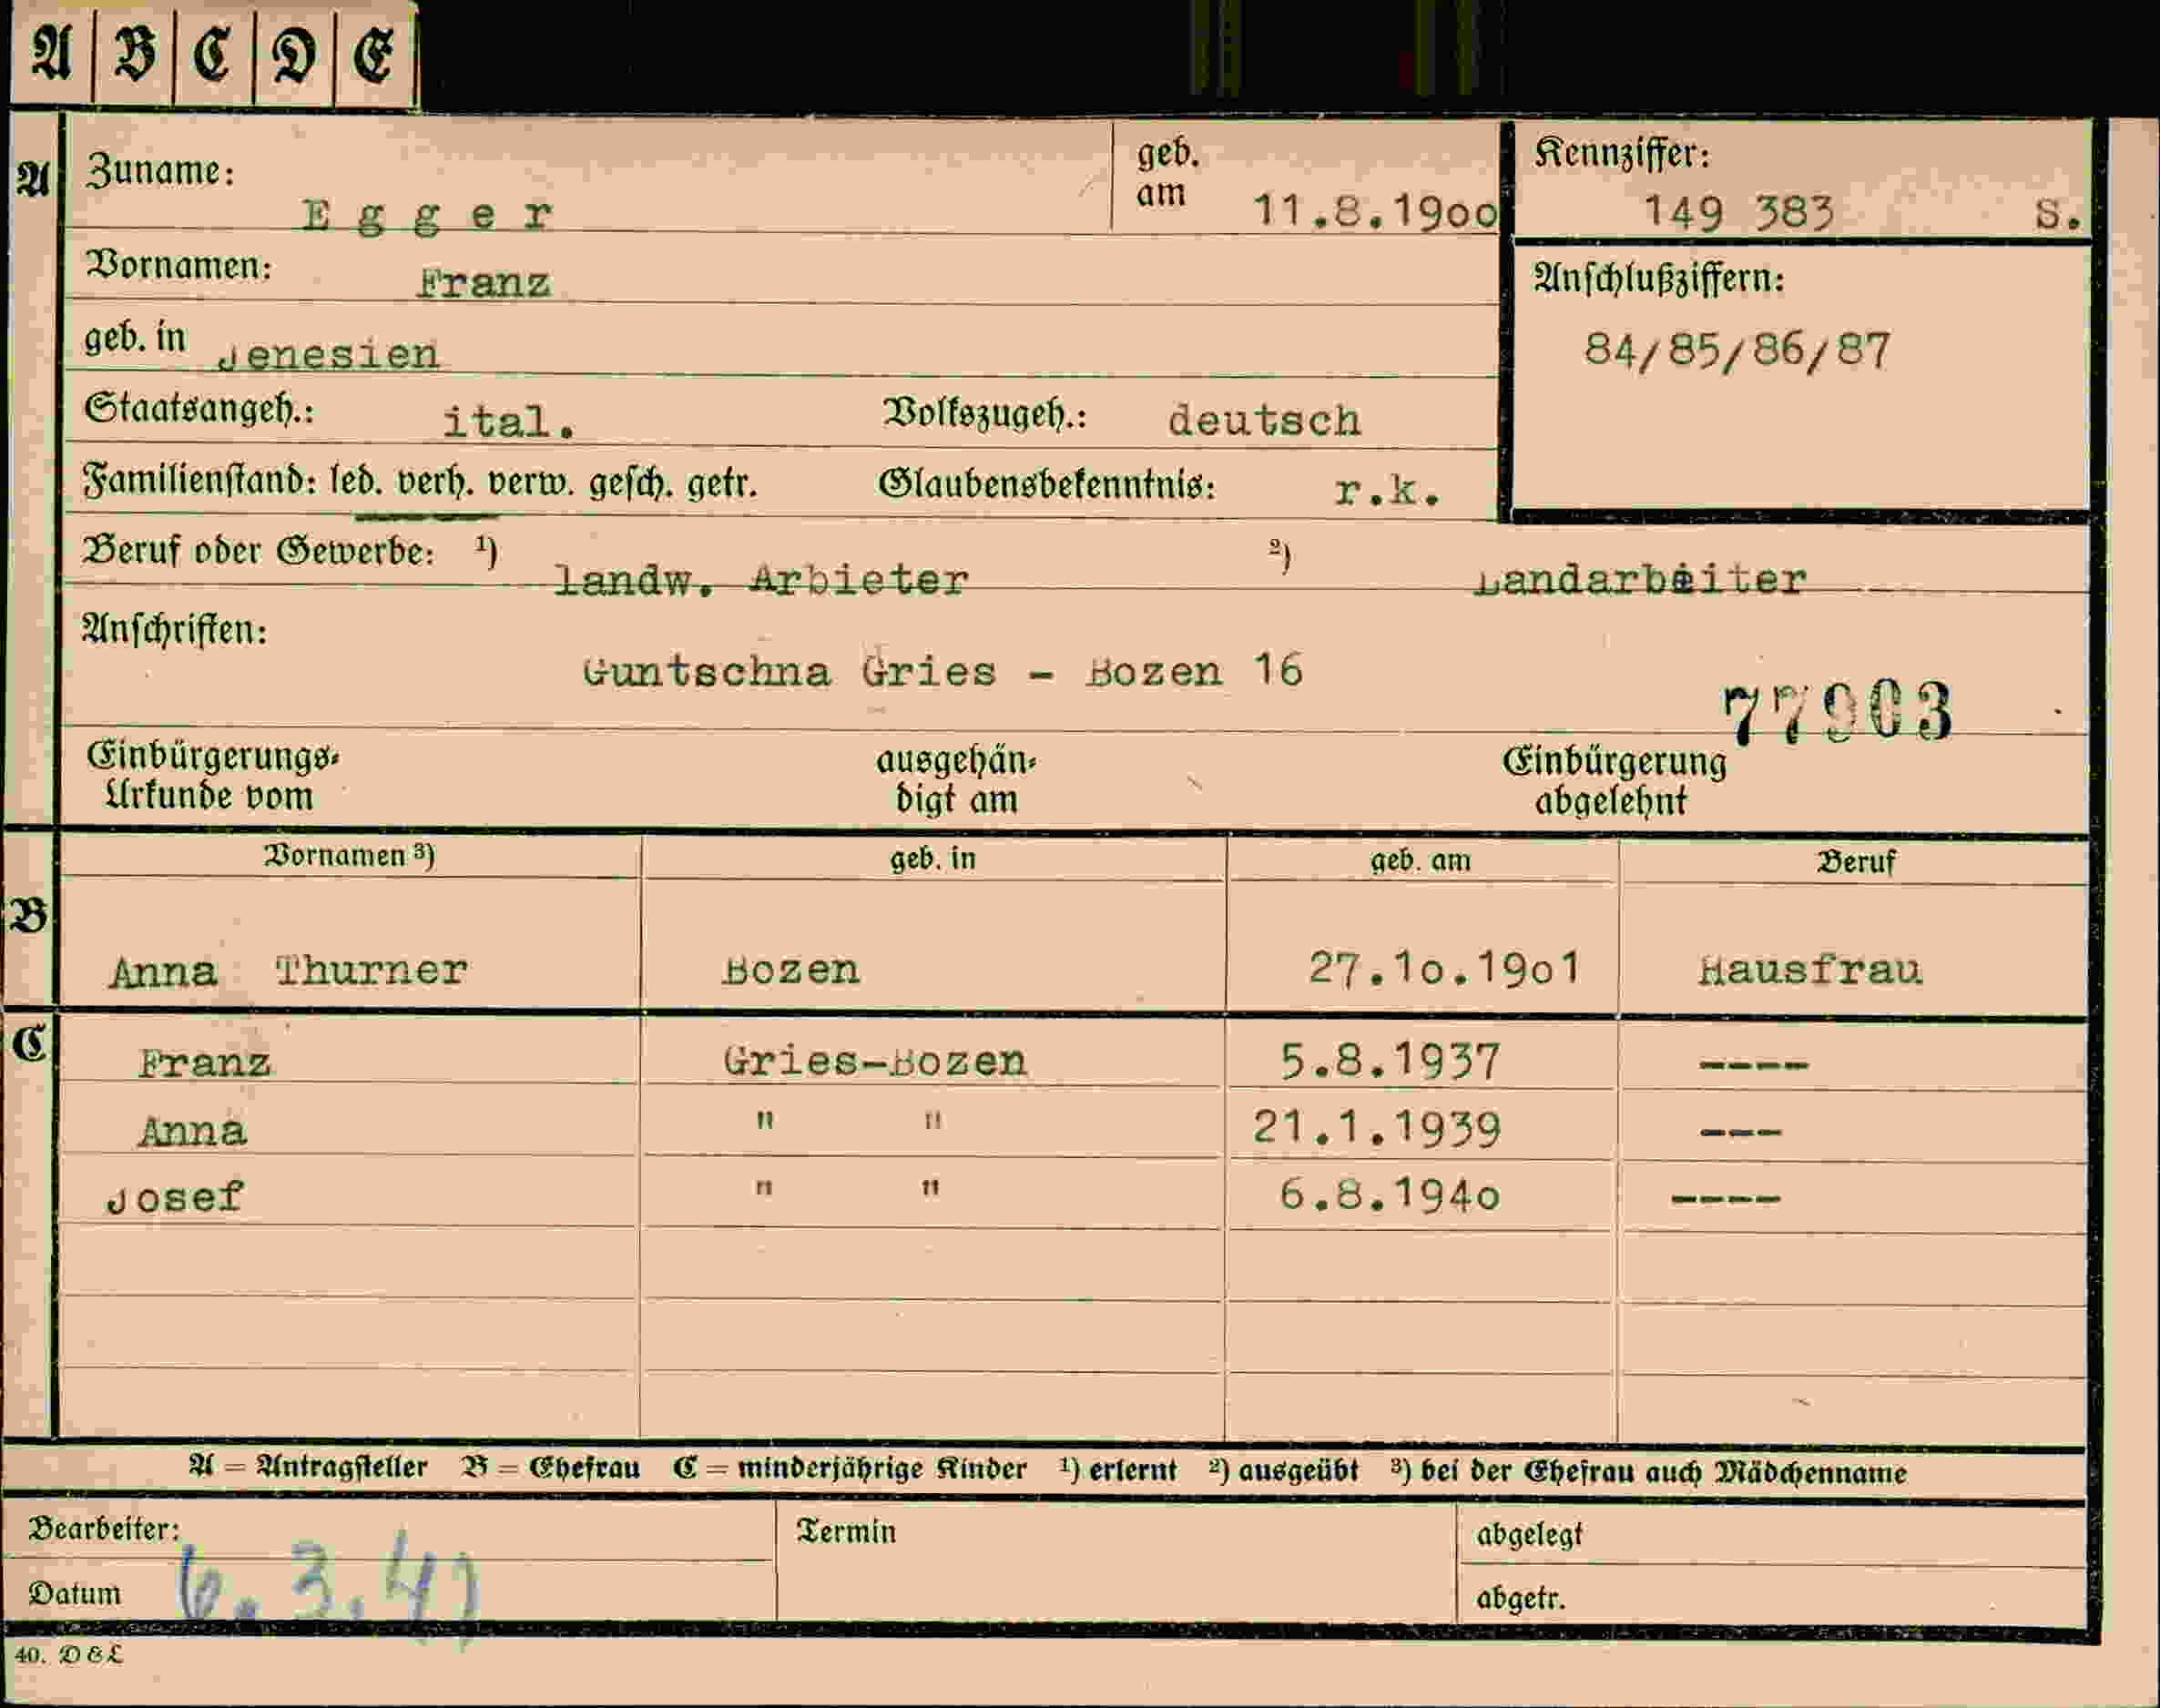 A B C D E
A Zuname: Egger geb. am 11.8.19oo Kennziffer: 149 383 S.
Vornamen: Franz Anschlußziffern:
geb. in Jenesien 84/85/86/87
Staatsangeh.: ital. Volkszugeh.: deutsch
Familienstand: led. verh. verw. gesch. getr. Glaubensbekenntnis: r.k.
Beruf oder Gewerbe: ¹) landw. Arbieter ²) Landarbeiter
Anschriften:
Guntschna Gries - Bozen 16
77903
Einbürgerungs- ausgehän- Einbürgerung
Urkunde vom digt am abgelehnt
Vornamen ³) geb. in geb. am Beruf
B
Anna Thurner Bozen 27.1o.19o1 Hausfrau
C Franz Gries-Bozen 5.8.1937 ----
Anna " " 21.1.1939 ---
Josef " " 6.8.194o ----
A = Antragsteller B = Ehefrau C = minderjährige Kinder ¹) erlernt ²) ausgeübt ³) bei der Ehefrau auch Mädchenname
Bearbeiter: Termin abgelegt
Datum 6.3.41 abgetr.
40. D & L